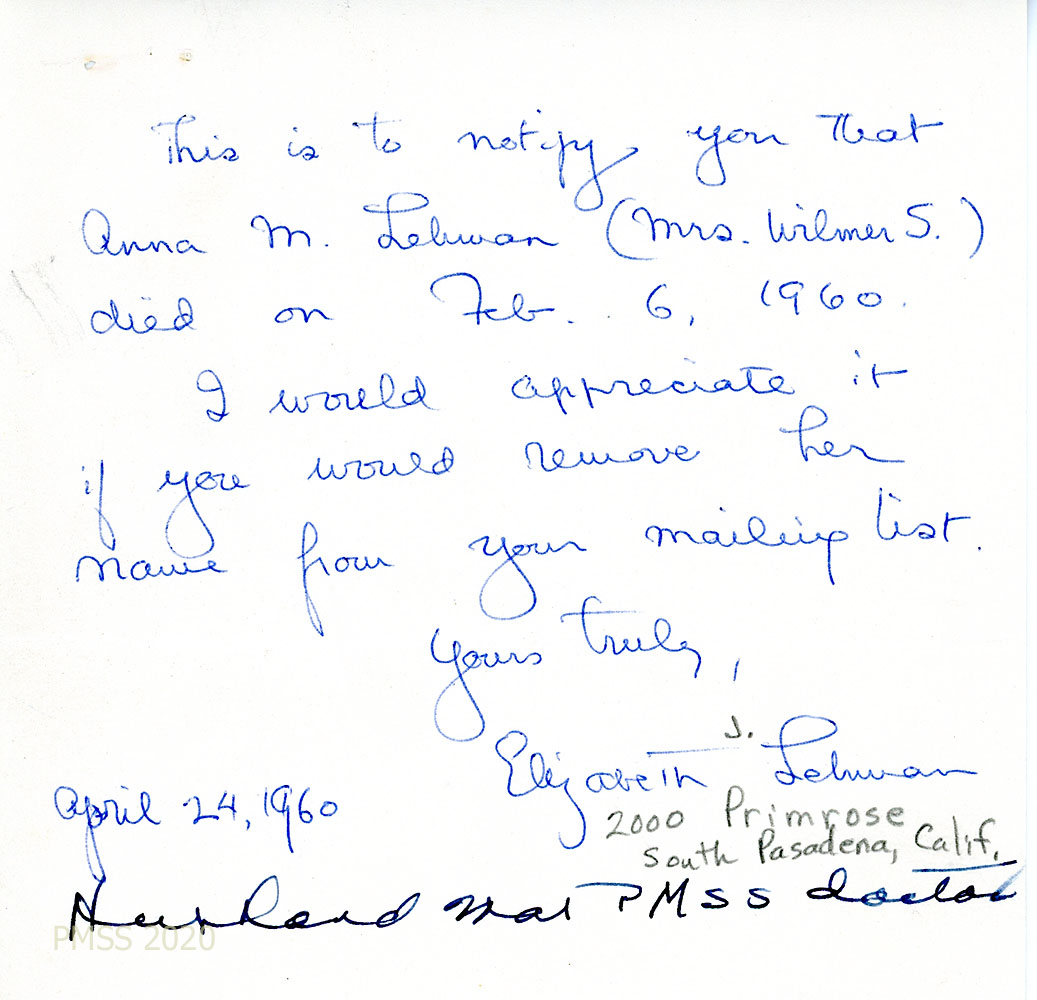 This is to notify you that
Anna M. Lehman (Mrs. Wilmer S.)
died on Feb. 6, 1960.
I would appreciate it
if you would remove her
name from your mailing list.
Yours truly,
Elizabeth J. Lehman
April 24, 1960
2000 Primrose
South Pasadena, Calif.
Husband was PMSS doctor
PMSS 2020